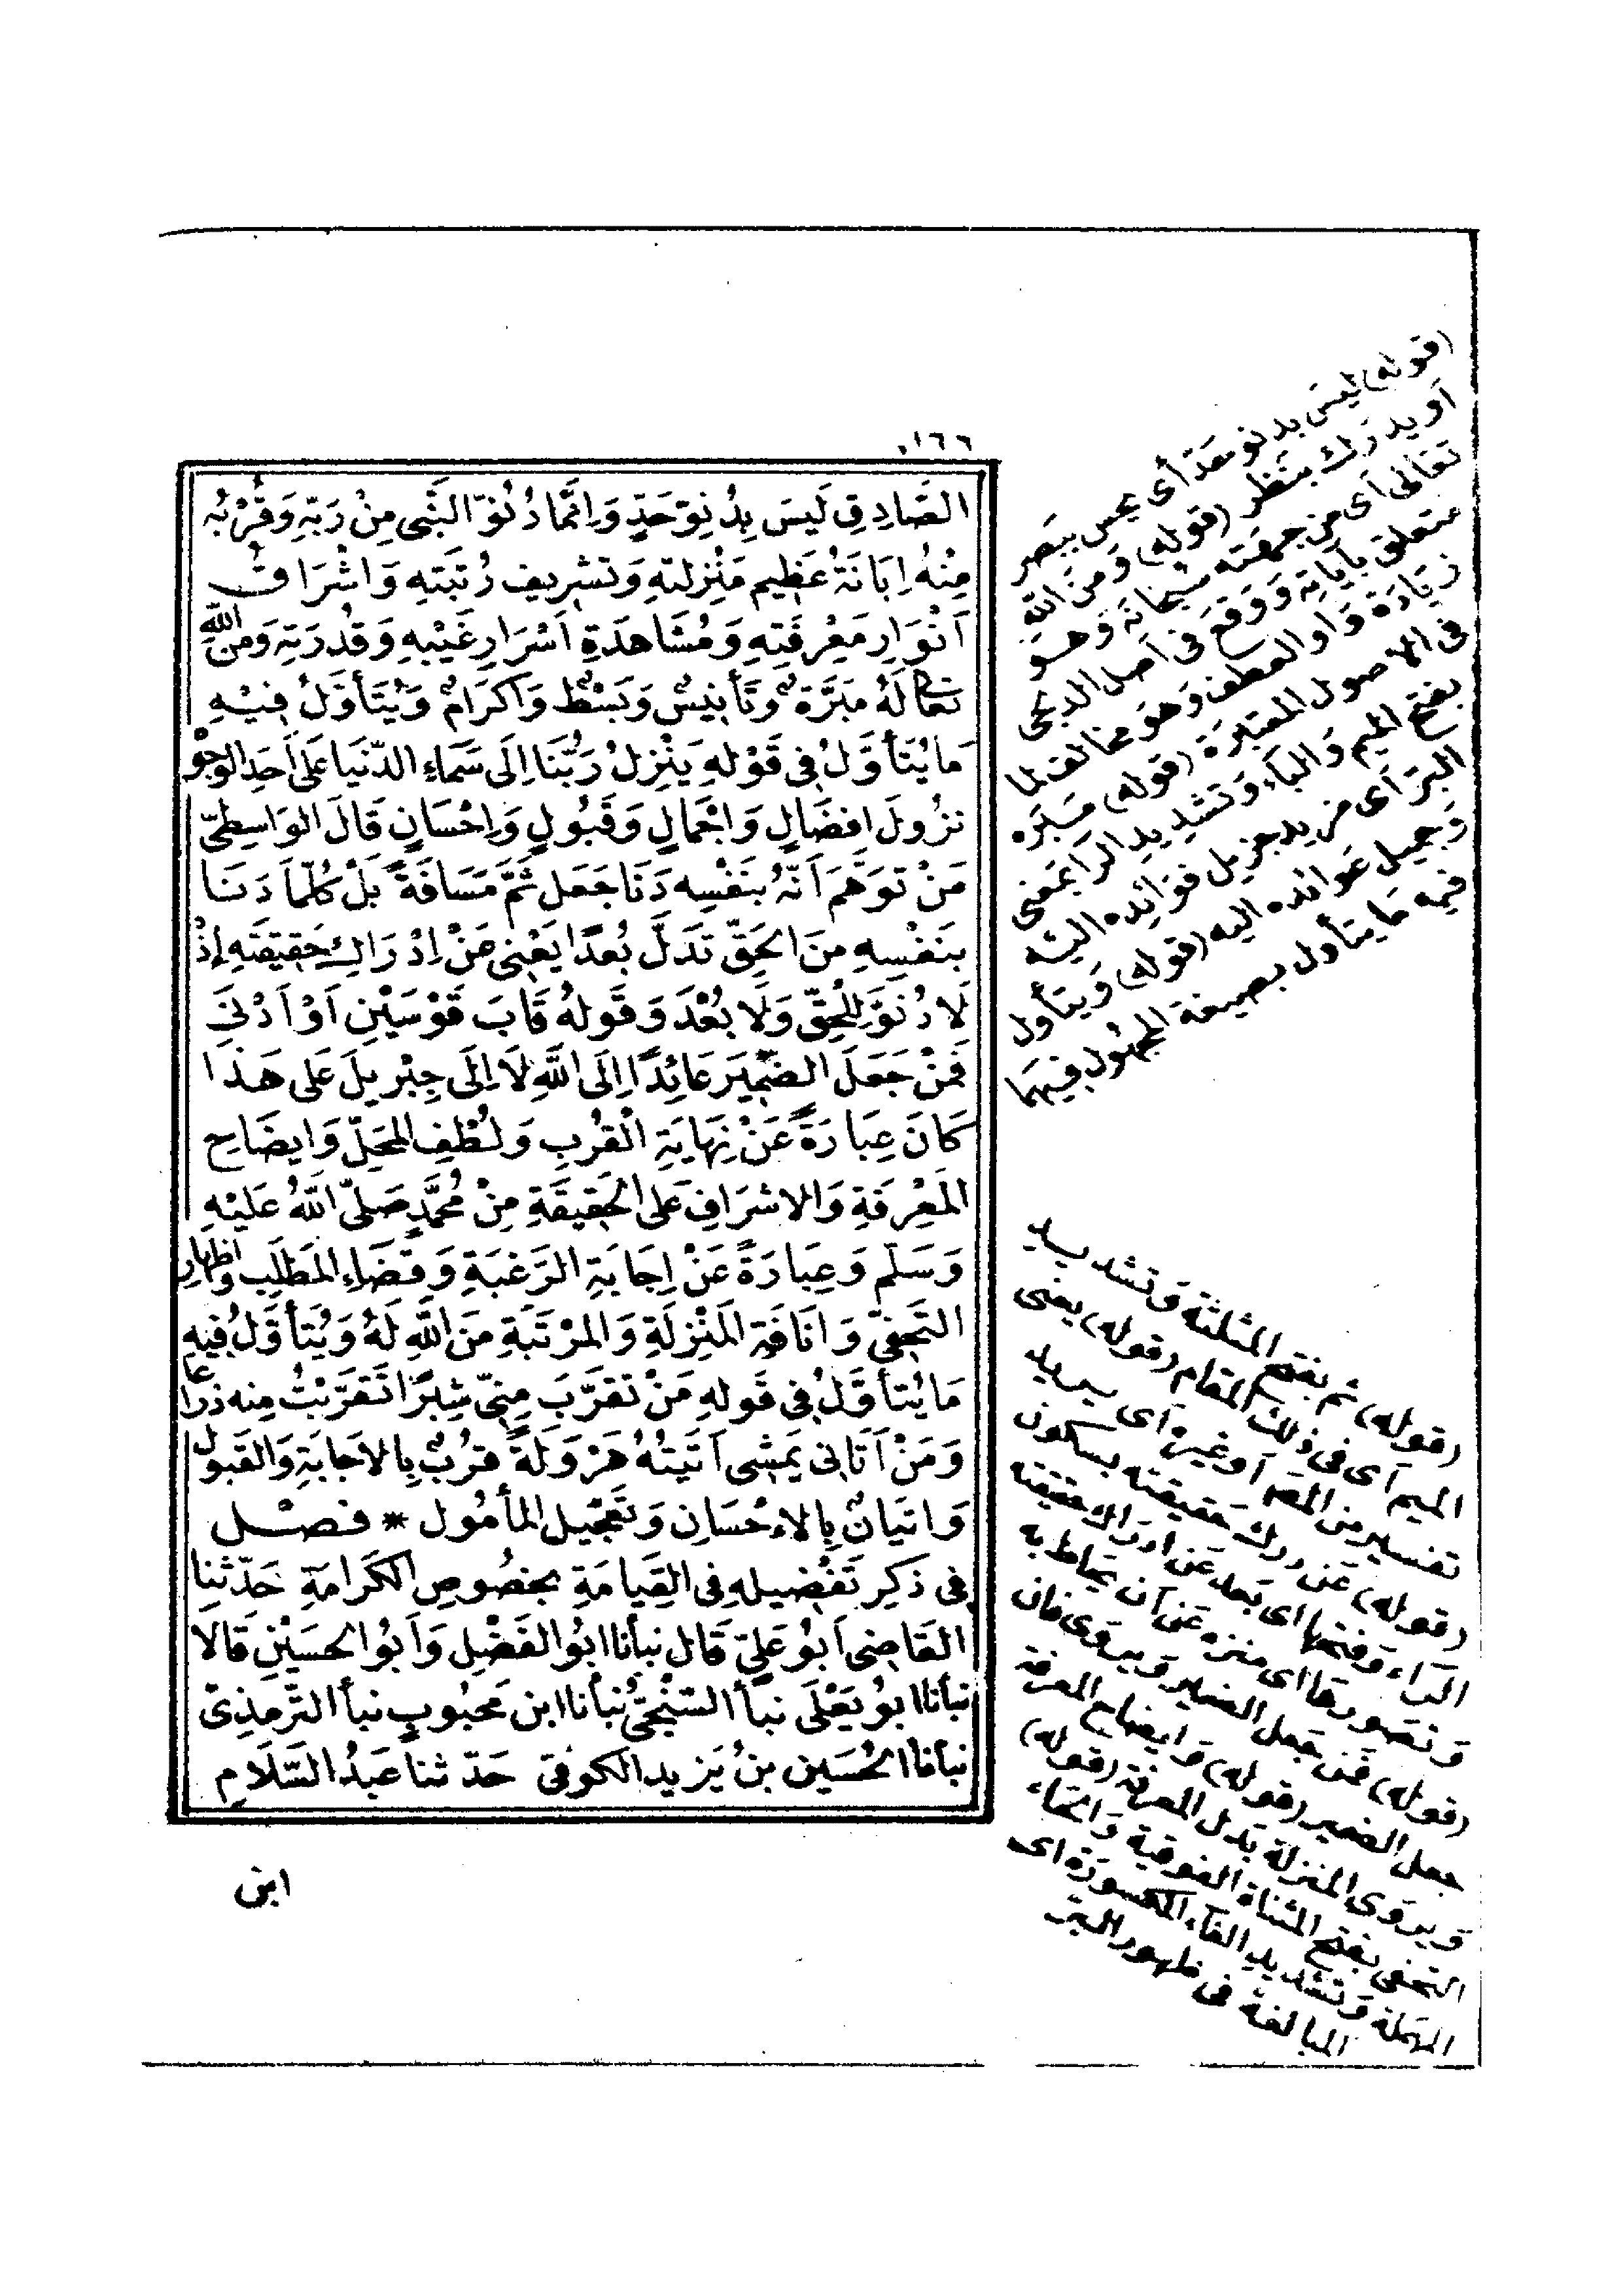 ١٦٦
الصَّادِقِ لَيْسَ بِدُنُوِّ حَدٍّ وَاِنَّمَا دُنُوُّ النَّبِيِّ مِنْ رَبِّهِ وَقُرْبُهُ
مِنْهُ اِبَانَةُ عَظِيمِ مَنْزِلَتِهِ وَتَشْرِيفِ رُتْبَتِهِ وَاشْرَاقُ
اَنْوَارِ مَعْرِفَتِهِ وَمُشَاهَدَةِ اَسْرَارِ غَيْبِهِ وَقُدْرَتِهِ وَمِنَ اللّٰهِ
تَعَالَى لَهُ مَبَرَّةٌ وَتَأْنِيسٌ وَبَسْطٌ وَاكْرَامٌ وَيُتَأَوَّلُ فِيْهِ
مَا يُتَأَوَّلُ فِي قَوْلِهِ يَنْزِلُ رَبُّنَا اِلَى سَمَاءِ الدُّنْيَا عَلَى اَحَدِ الوُجُوْ
نُزُولَ اِفْضَالٍ وَاِجْمَالٍ وَقَبُولٍ وَاِحْسَانٍ قَالَ الوَاسِطِيّ
مَنْ تَوَهَّمَ اَنَّهُ بِنَفْسِهِ دَنَا جَعَلَ ثَمَّ مَسَافَةً بَلْ كُلَّمَا دَنَا
بِنَفْسِهِ مِنَ الحَقِّ تَدَلَّى بُعْدًا يَعْنِي عَنْ اِدْرَاكِ حَقِيقَتِهِ إذْ
لَا دُنُوَّ لِلْحَقِّ وَلَا بُعْدَ وَقَوْلُهُ قَابَ قَوْسَيْنِ اَوْ اَدْنَى
فَمَنْ جَعَلَ الضَّمِيرَ عَائِدًا اِلَى اللّٰهِ لَا اِلَى جِبْرِيلَ عَلَى هَذَا
كَانَ عِبَارَةً عَنْ نِهَايَةِ الْقُرْبِ وَلُطْفِ المَحَلِّ وَايضَاحِ
المَعْرِفَةِ وَالاشْرَافِ عَلَى الحَقِيقَةِ مِنْ مُحَمَّدٍ صَلَّى اللّٰهُ عَلَيْهِ
وَسَلَّمَ وَعِبَارَةً عَنْ اِجَابَةِ الرَّغْبَةِ وَقَضَاءِ المَطْلَبِ وَاظْهَارِ
التَّحَفِّي وَانَافَةِ المَنْزِلَةِ وَالمَرْتَبَةِ مِنَ اللّٰهِ لَهُ وَيُتَأَوَّلُ فِيهِ
مَا يُتَأَوَّلُ فِي قَولِهِ مَنْ تَقَرَّبَ مِنِّي شِبْرًا تَقَرَّبْتُ مِنه ذراعا
وَمَنْ اَتَانِي يَمْشِي اَتَيْتُهُ هَرْوَلَةً قُرْبٌ بِالاجَابَةِ وَالقَبُول
وَاتيَانٌ بِالاِحْسَانِ وَتَعْجِيلِ المَأْمُولِ * فَصْل
فِي ذِكرِ تَفْضِيلِهِ فِي القِيَامَةِ بِخُصُوصِ الكَرَامَةِ حَدَّثنا
القَاضِي اَبُو عَلِيٍّ قَالَ نبأنا ابُو الفَضْلِ وَاَبُو الحسَيْنِ قَالا
نبأنا ابُو يَعْلَى نبأ السِّنْجِيُّ نبأنا ابن مَحبُوبٍ نبأ التِّرْمِذِيّ
نبأنا الحُسَين بنُ يَزِيد الكوفي حَدّثنا عَبدُ السَّلَامِ
ابن
(قوله) ليس بدنو حد أى يحس ببصر
أو يدرك بنظر (قوله) ومن الله
تعالى أى من جهته سبحانه وهو
متعلق بابانة ووقع فى اصل الدلجى
زيادة واو العطف وهو مخالف لما
فى الاصول المعتبرة (قوله) مبره
بفتح الميم والباء وتشديد الرا بمعنى
البر أى مزيد جزيل فوائده اليه
وجميل عوائده اليه (قوله) ويتأول
فيه ما يتأول بصيغة المجهول فيهما
(قوله) ثم بفتح المثلثة وتشديد
الميم أى فى ذلك المقام (قوله) يعنى
تفسير من المص أو غيره أى يريد
(قوله) عن درك حقيقته بسكون
الراء وفتحها أى بعد عن ادراك حقيقته
وتصورها أى منزه عن أن يحاط به
(قوله) فمن جعل الضمير ويروى فان
جعل الضمير (قوله) وايضاح المعرفة
ويروى المنزلة بدل المعرفة (قوله)
التحفى بفتح المثناة الفوقية والحاء
المهملة وتشديد الفاء المكسورة أى
المبالغة فى ظهور البر